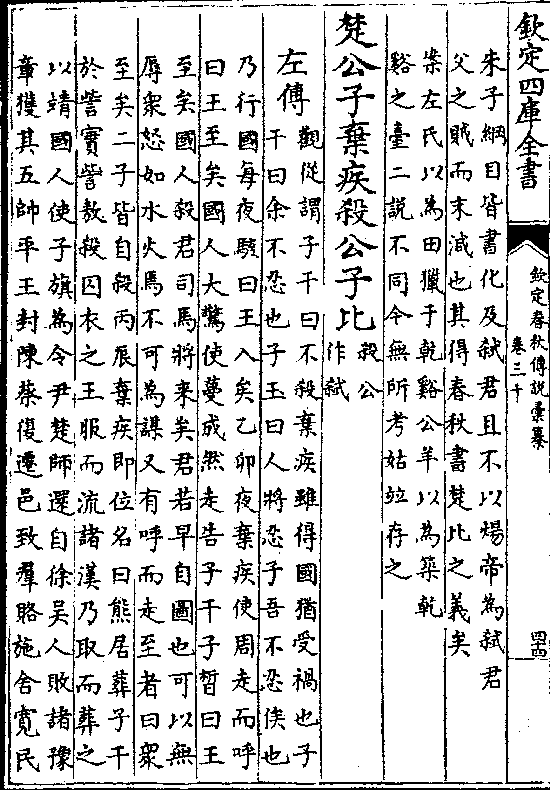 欽定四庫全書
欽定春秋傳說彙纂
卷三十
朱子綱目皆書化及弑君且不以煬帝為弑君
父之賊而末減也其得春秋書楚比之義矣
案左氏以為田獵于乾谿公羊以為築乾
谿之臺二說不同今無所考姑竝存之
楚公子棄疾殺公子比 殺公
作弑
左傳 觀從謂子干曰不殺棄疾雖得國猶受禍也子
干曰余不忍也子玉曰人將忍子吾不忍俟也
乃行國每夜駭曰王入矣乙卯夜棄疾使周走而呼
曰王至矣國人大驚使蔓成然走告子干子晳曰王
至矣國人殺君司馬將來矣君若早自圖也可以無
辱衆怒如水火焉不可為謀又有呼而走至者曰衆
至矣二子皆自殺丙辰棄疾即位名曰熊居葬子干
於訾實訾敖殺囚衣之王服而流諸漢乃取而葬之
以靖國人使子旗為令尹楚師還自徐吳人敗諸豫
章獲其五帥平王封陳蔡復遷邑致羣賂施舍寬民